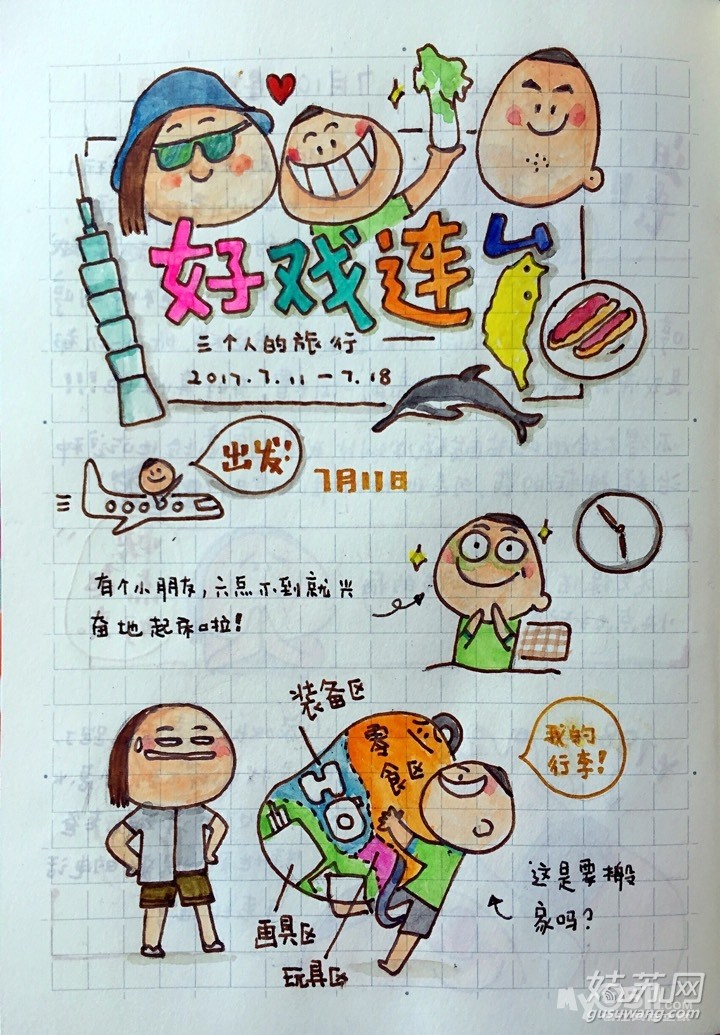 好戏连
三个人的旅行
2017.7.11-7.18
出发!
7月11日
有个小朋友,六点不到就兴
奋地起床啦!
装备区
零
食区
我的
行李!
画具区
玩具区
这是要搬
家吗?
姑苏网
gusuwang.com